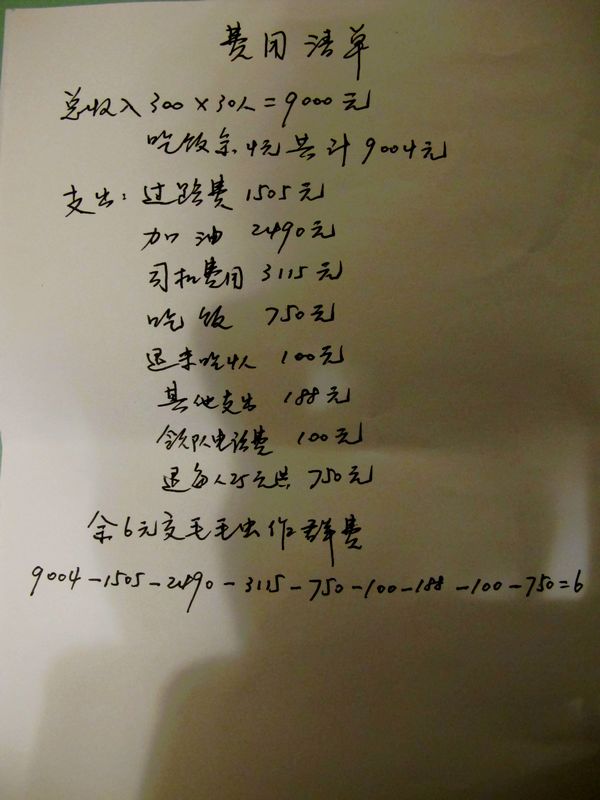 费用清单
总收入300×30人=9000元
吃饭余4元共计9004元
支出:过路费1505元
加油 2490元
司机费用 3115元
吃饭 750元
退未吃4人 100元
其他支出 188元
领队电话费 100元
退每人25元共 750元
余6元交毛毛虫作群费
9004-1505-2490-3115-750-100-188-100-750=6